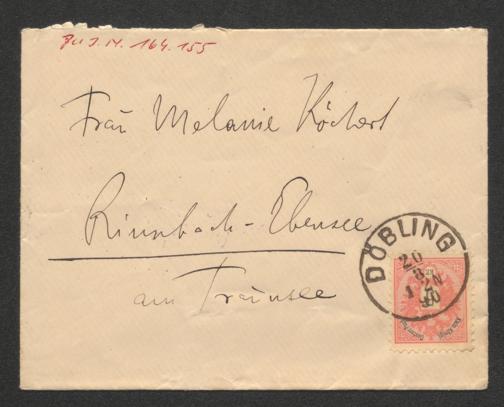 Zu I.N. 164.155
Frau Melanie Köchert
Rinnbach-Ebensee
am Traunsee
DÖBLING
20
8
90
5